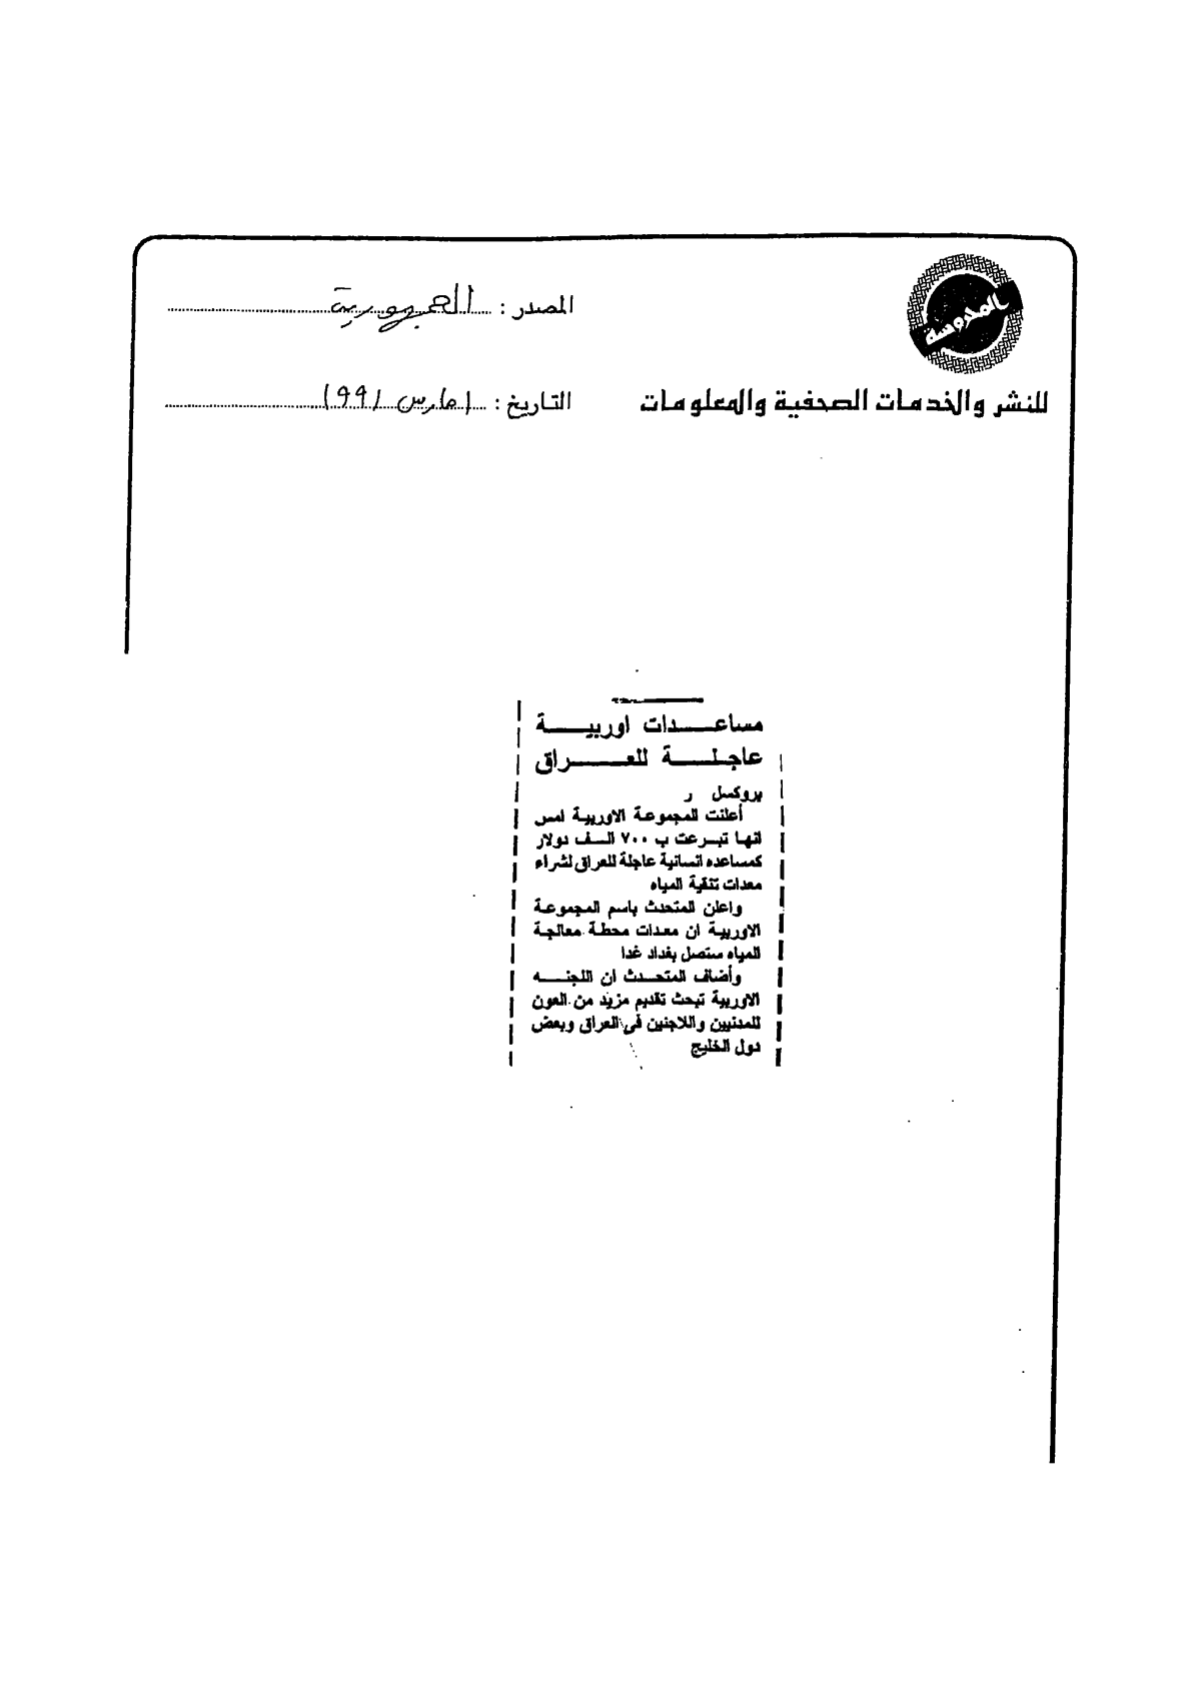 المحروسة
المصدر : الجمهورية
للنشر والخدمات الصحفية والمعلومات
التاريخ : ١ مارس ١٩٩١
مساعدات اوربية
عاجلة للعراق
بروكسل ر
أعلنت المجموعة الاوربية امس
انها تبرعت ب ٧٠٠ الف دولار
كمساعده انسانية عاجلة للعراق لشراء
معدات تنقية المياه
واعلن المتحدث باسم المجموعة
الاوربية ان معدات محطة معالجة
المياه ستصل بغداد غدا
وأضاف المتحدث ان اللجنه
الاوربية تبحث تقديم مزيد من العون
للمدنيين واللاجئين فى العراق وبعض
دول الخليج